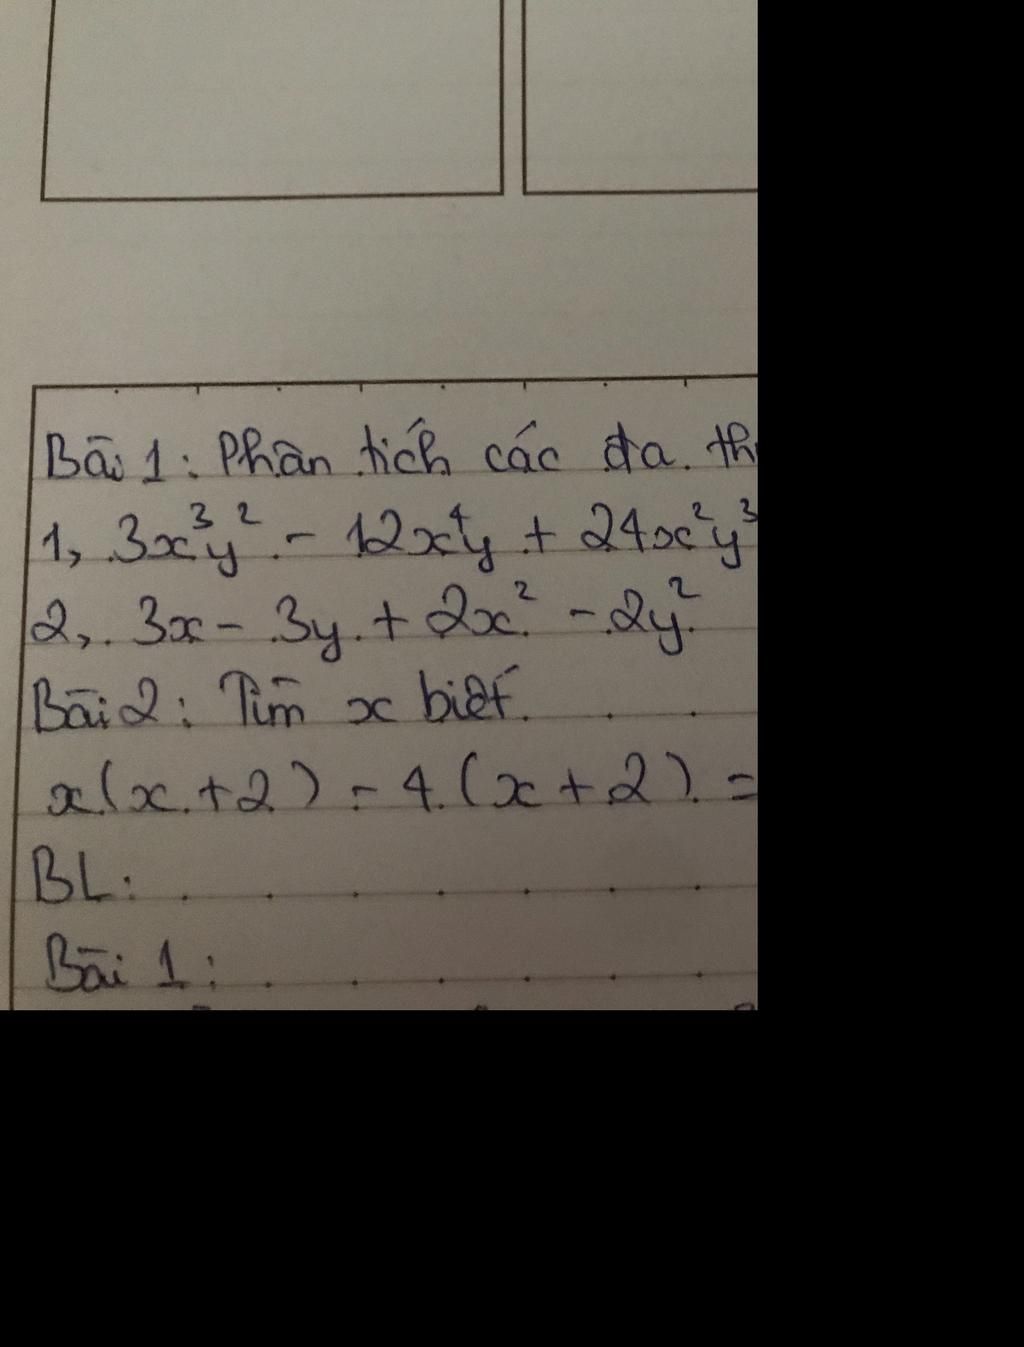 Bài 1: Phân tích các đa th
1, 3x³y² - 12x⁴y + 24x²y³
2, 3x - 3y + 2x² - 2y²
Bài 2: Tìm x biết
x(x+2) - 4(x+2) =
BL:
Bài 1: